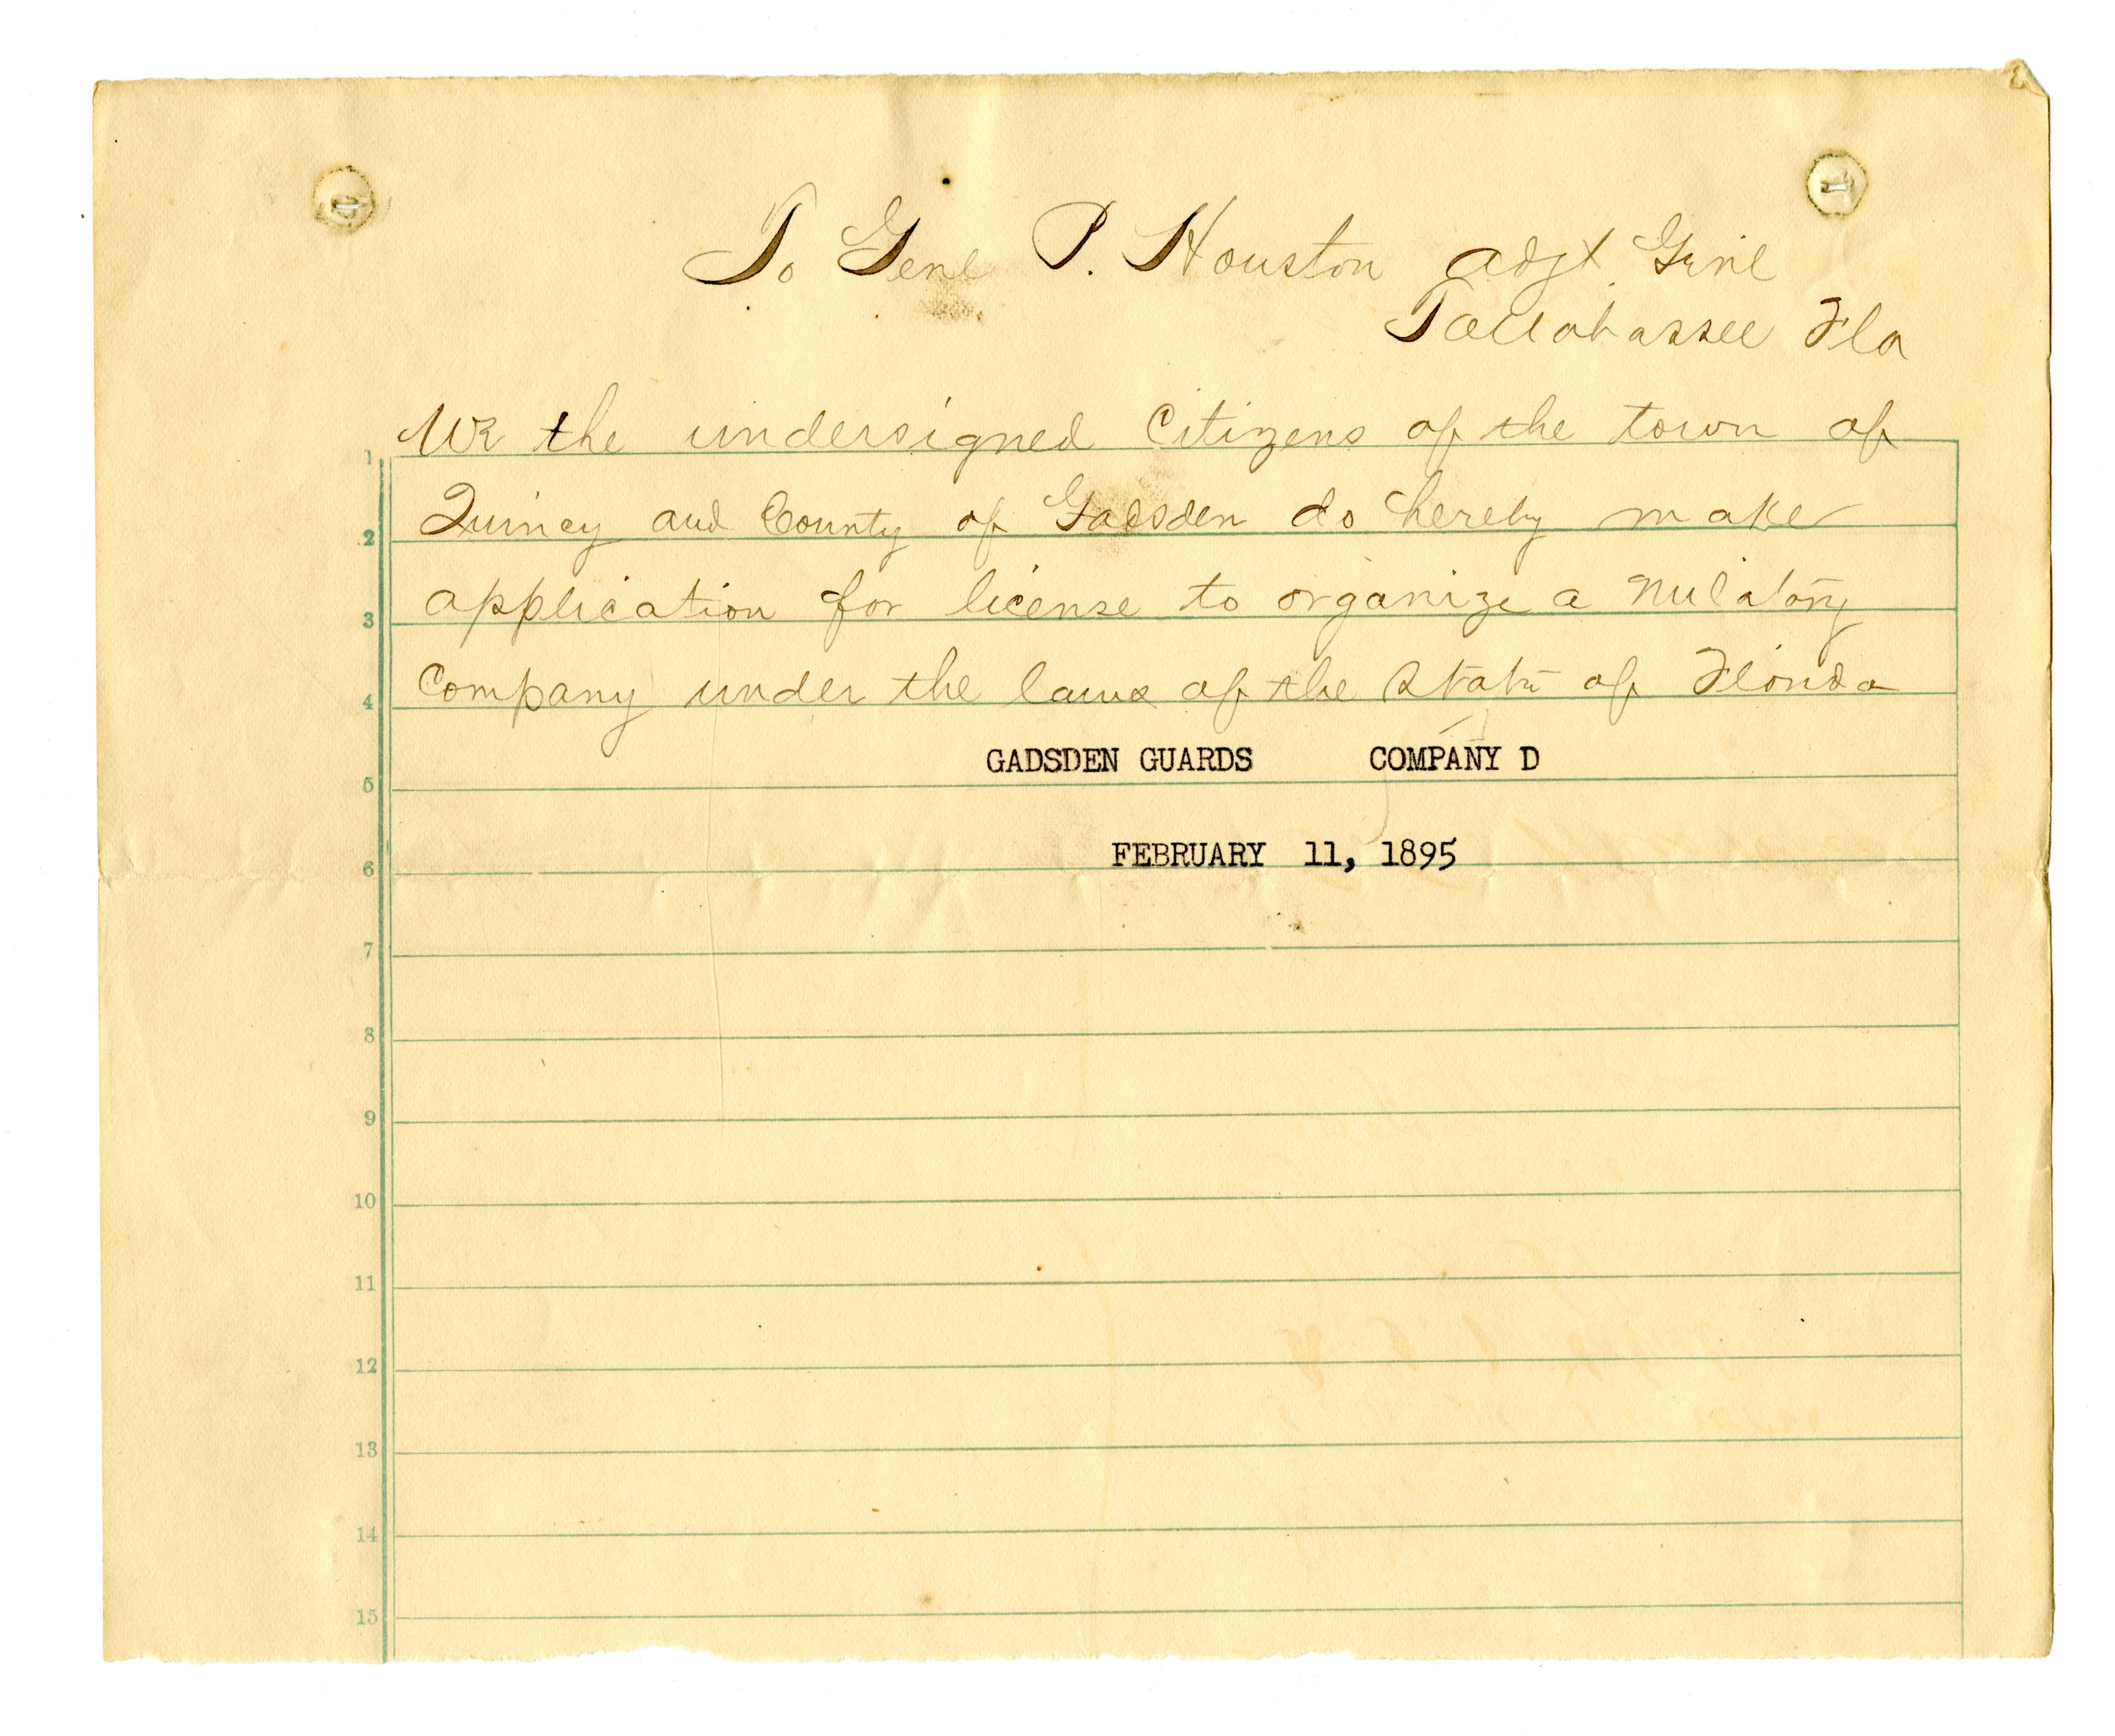 To Genl P. Houston Adgt. Genl
Tallahassee Fla
We the undersigned Citizens of the town of
Quincy and County of Gadsden do hereby make
application for license to organize a Military
Company under the laws of the State of Florida
GADSDEN GUARDS COMPANY D
FEBRUARY 11, 1895
1
2
3
4
5
6
7
8
9
10
11
12
13
14
15